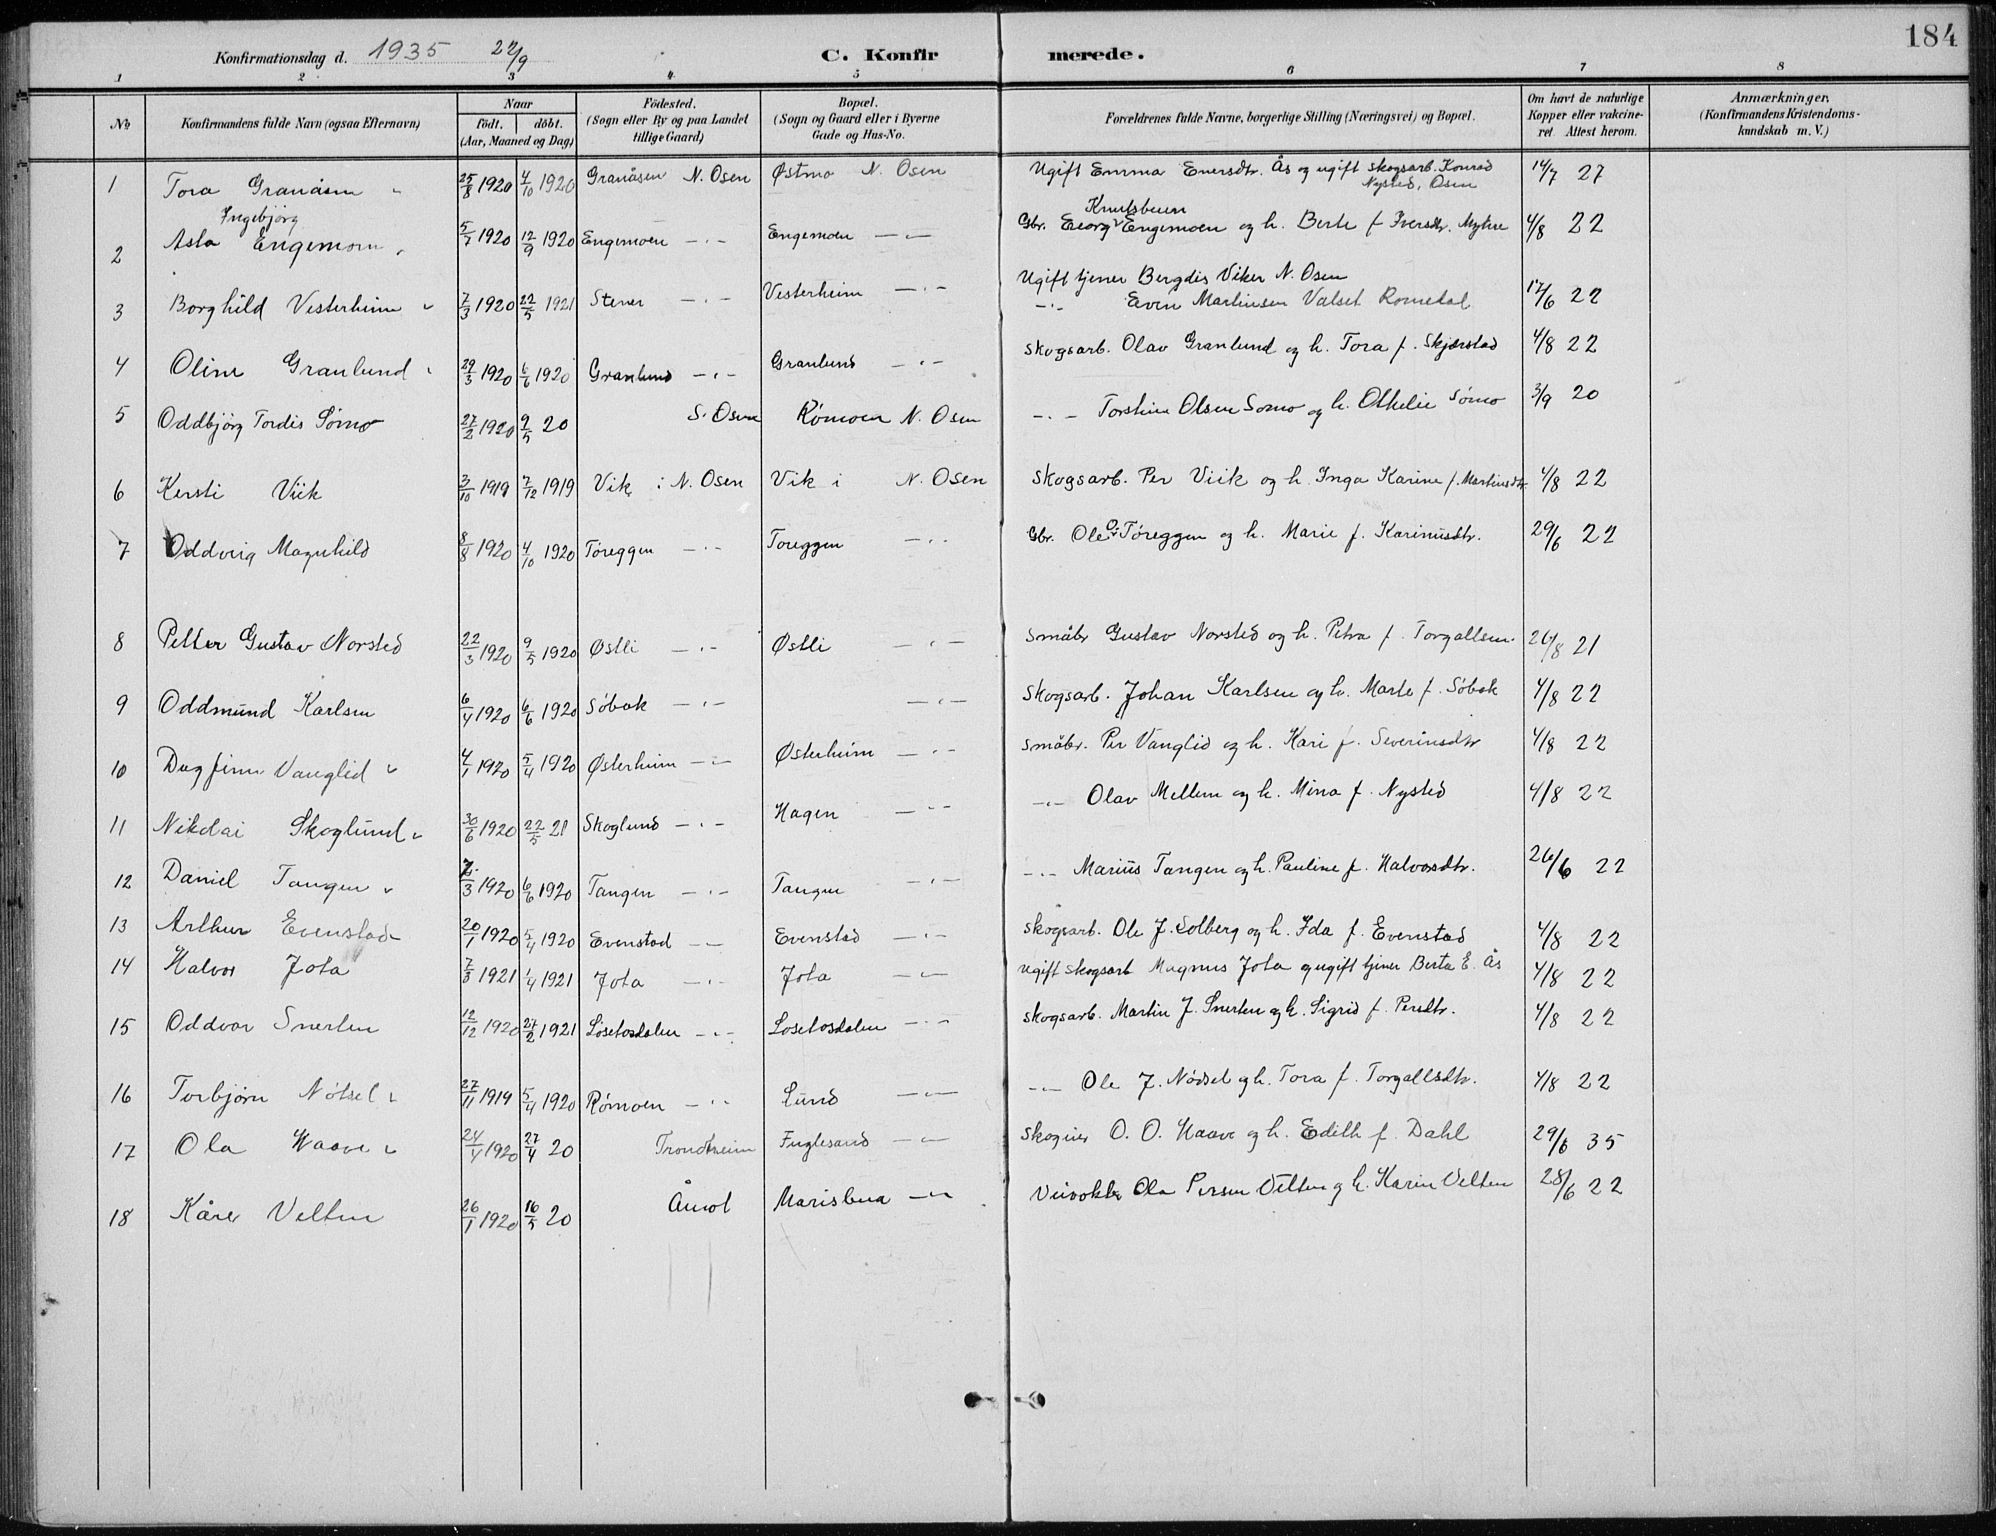 184
Konfirmationsdag d. 1935 22/9 C. Konfirmerede.
1 2 3 4 5 6 7 8
No Konfirmandens fulde Navn (ogsaa Efternavn) Naar födt. döbt. (Aar, Maaned og Dag) Födested. (Sogn eller By og paa Landet tillige Gaard) Bopæl. (Sogn og Gaard eller i Byerne Gade og Hus-No. Forældrenes fulde Navne, borgerlige Stilling (Næringsvei) og Bopæl. Om havt de naturlige Kopper eller vakcineret. Attest herom. Anmærkninger. (Konfirmandens Kristendomskundskab m. V.)
1 Tora Granåsen 25/8 1920 4/10 1920 Granåsen N. Osen Østmo N. Osen Ugift Emma Enersdtr. Ås og ugift skogsarb. Konrad Nysted, Osen 14/7 27
2 Asta Ingebjörg Engemoen 5/7 1920 12/9 1920 Engemoen -"- Engemoen -"- Gbr. Georg Knutsbuen Engemoen og h. Berte f. Iversdtr. Myhre 4/8 22
3 Borghild Vesterheim 7/3 1920 22/5 1921 Stener -"- Vesterheim -"- Ugift tjener Bergdis Viker N. Osen
-"- Even Martinsen Valset Romedal 12/6 22
4 Oline Granlund 29/3 1920 6/6 1920 Granlund -"- Granlund -"- Skogsarb. Olav Granlund og h. Tora f. Skjærstad 4/8 22
5 Oddbjörg Tordis Sømo 27/2 1920 9/5 20 S. Osen Rømoen N. Osen -"- Torstein Olsen Somo og h. Othelie Sømo 3/9 20
6 Kersti Viik 3/10 1919 7/12 1919 Vik i N. Osen Vik i N. Osen Skogsarb. Per Viik og h. Inga Karine f. Martinsdtr 4/8 22
7 Oddveig Magnhild 8/8 1920 4/10 1920 Töreggen -"- Toreggen -"- Gbr. Ole O. Tøreggen og h. Marie f. Karinusdtr. 29/6 22
8 Petter Gustav Norsted 22/3 1920 9/5 1920 Østli -"- Østli -"- Småbr Gustav Norsted og h. Petra f. Torgallsen. 26/8 21
9 Oddmund Karlsen 6/4 1920 6/6 1920 Søbak -"- -"- Skogsarb. Johan Karlsen og h. Marte f. Søbak 4/8 22
10 Dagfinn Vanglid 4/1 1920 5/4 1920 Østerheim -"- Østerheim -"- Småbr. Per Vanglid og h. Kari f. Severinsdtr 4/8 22
11 Nikolai Skoglund 30/6 1920 22/5 21 Skoglund -"- Hagen -"- -"- Olav Mellem og h. Mina f. Nysted 4/8 22
12 Daniel Tangen 1920 6/6 1920 Tangen -"- Tangen -"- -"- Marius Tangen og h. Pauline f. Halvosdtr. 26/6 22
13 Arthur Evenstad 20/1 1920 5/4 1920 Evenstad -"- Evenstad -"- Skogsarb. Ole J. Solberg og h. Ida f. Evenstad 4/8 22
14 Halvor Jota 7/3 1921 1/4 1921 Jota -"- Jota -"- ugift skogsarb Magnus Jota og ugift tjener Berta E. Ås 4/8 22
15 Oddvar Snerten 12/12 1920 27/2 1921 Løsetosdalen -"- Losetosdalen -"- skogsarb. Martin J. Snerten og h. Sigrid f. Persdtr. 4/8 22
16 Torbjørn Nötsel 27/11 1919 5/4 1920 Rømoen -"- Lund -"- -"- Ole J. Nødsel og h. Tora f. Torgallsdtr. 4/8 22
17 Ola Haave 24/4 1920 27/4 20 Trondheim Fuglesand -"- Skogeier O. O. Haave og h. Edith f. Dahl 29/6 35
18 Kåre Velten 26/1 1920 16/5 20 Åmot Marisbua -"- Ola Persen Velten og h. Karin Velten 28/6 22